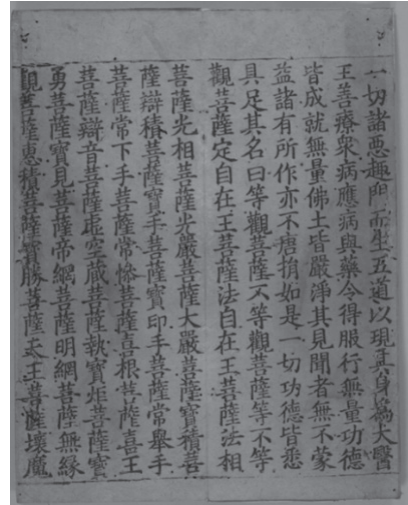 一切諸悪趣門而生五道以現其身爲大醫
王善療衆病應病與藥令得服行無量功德
皆成就無量佛土皆嚴淨其見聞者無不蒙
益諸有所作亦不唐捐如是一切功德皆悉
具足其名曰等觀菩薩不等觀菩薩等不等
觀菩薩定自在王菩薩法自在王菩薩法相
菩薩光相菩薩光嚴菩薩大嚴菩薩寶積菩
薩辯積菩薩寶手菩薩寶印手菩薩常舉手
菩薩常下手菩薩常慘菩薩喜根菩薩喜王
菩薩辯音菩薩虛空藏菩薩執寶炬菩薩寶
勇菩薩寶見菩薩帝網菩薩明網菩薩無緣
觀菩薩惠積菩薩寶勝菩薩天王菩薩壞魔